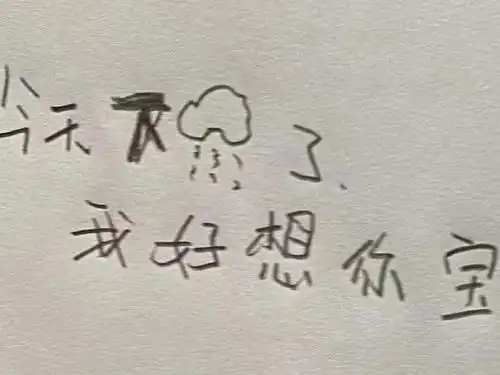 今天下了
我好想你宝